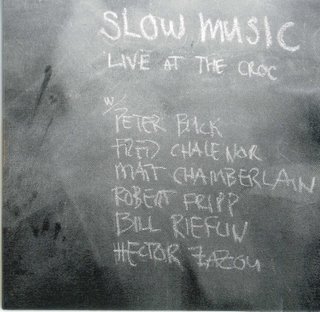 SLOW MUSIC
LIVE AT THE CROC
w/
PETER BUCK
FRED CHALENOR
MATT CHAMBERLAIN
ROBERT FRIPP
BILL RIEFLIN
HECTOR ZAZOU